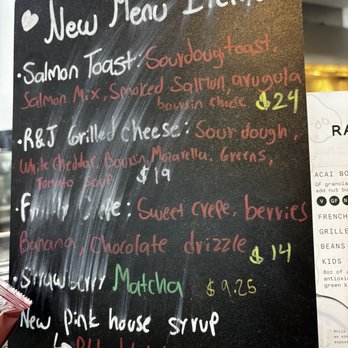 New Menu Items
· Salmon Toast: Sourdough toast,
Salmon Mix, Smoked Salmon, arugula
boursin cheese $24
· R&J Grilled cheese: Sour dough,
White Cheddar, Boursin, Mozarella, Greens,
Tomato Soup $19
· Family Style: Sweet crepe, berries
Banana, Chocolate drizzle $14
· Strawberry Matcha $9.25
New pink house syrup
RA
ACAI BO
GF granola
add nut bu
V GF
FRENCH
GRILLE
BEANS
KIDS
8oz of
antioxi
green k